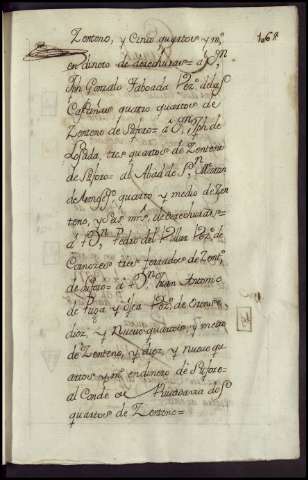 Zenteno, y Cinco quartos y mº
en dinero de derechuras = á Dn.
Jph Gonzalo Taboada Vezº. de las
Castiñas quatro quartos de
Zenteno de Sisforo = á Dn. Jph de
Losada, tres quartos de Zenteno
de Sisforo = al Abad de Sn. Martin
de quatro y medio de Zen
teno, y mrs. de derechuras =
á Dn. Pedro del Villar Vezº. de
tres ferrados de Zentº.
de Sisforo = á Dn. Juan Antonio
de Puga y Vezº. de
diez, y Nueve quartos, y medio
de Zenteno, y diez, y nueve qu
artos y mº. en dinero de Sisforo =
al Conde de dos
quartos de Zenteno =